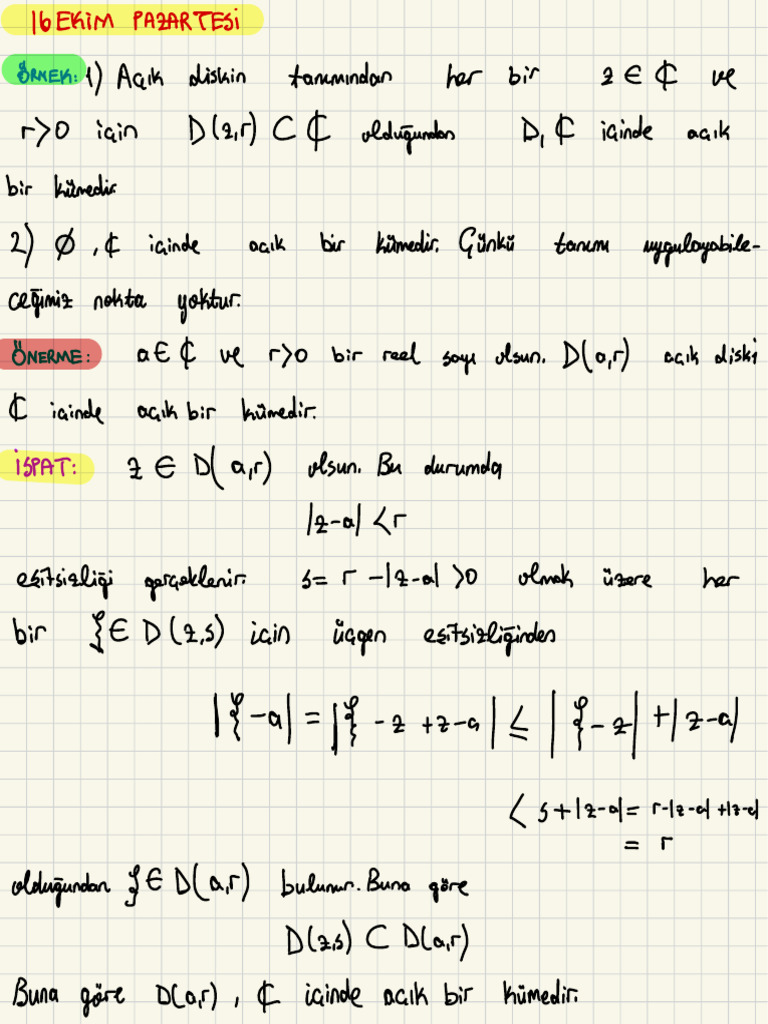 16 EKİM PAZARTESİ
ÖRNEK: 1) Açık diskin tanımından her bir z ∈ ℂ ve
r>0 için D(z,r) ⊂ ℂ olduğundan D, ℂ içinde açık
bir kümedir.
2) ∅, ℂ içinde açık bir kümedir. Çünkü tanımı uygulayabile-
ceğimiz nokta yoktur.
ÖNERME: a∈ℂ ve r>0 bir reel sayı olsun. D(a,r) açık diski
ℂ içinde açık bir kümedir.
İSPAT: z ∈ D(a,r) olsun. Bu durumda
|z-a| < r
eşitsizliği gerçeklenir. s = r - |z-a| > 0 olmak üzere her
bir ξ ∈ D(z,s) için üçgen eşitsizliğinden
|ξ - a| = |ξ - z + z - a| ≤ |ξ - z| + |z-a|
< s + |z-a| = r - |z-a| + |z-a|
= r
olduğundan ξ ∈ D(a,r) bulunur. Buna göre
D(z,s) ⊂ D(a,r)
Buna göre D(a,r), ℂ içinde açık bir kümedir.